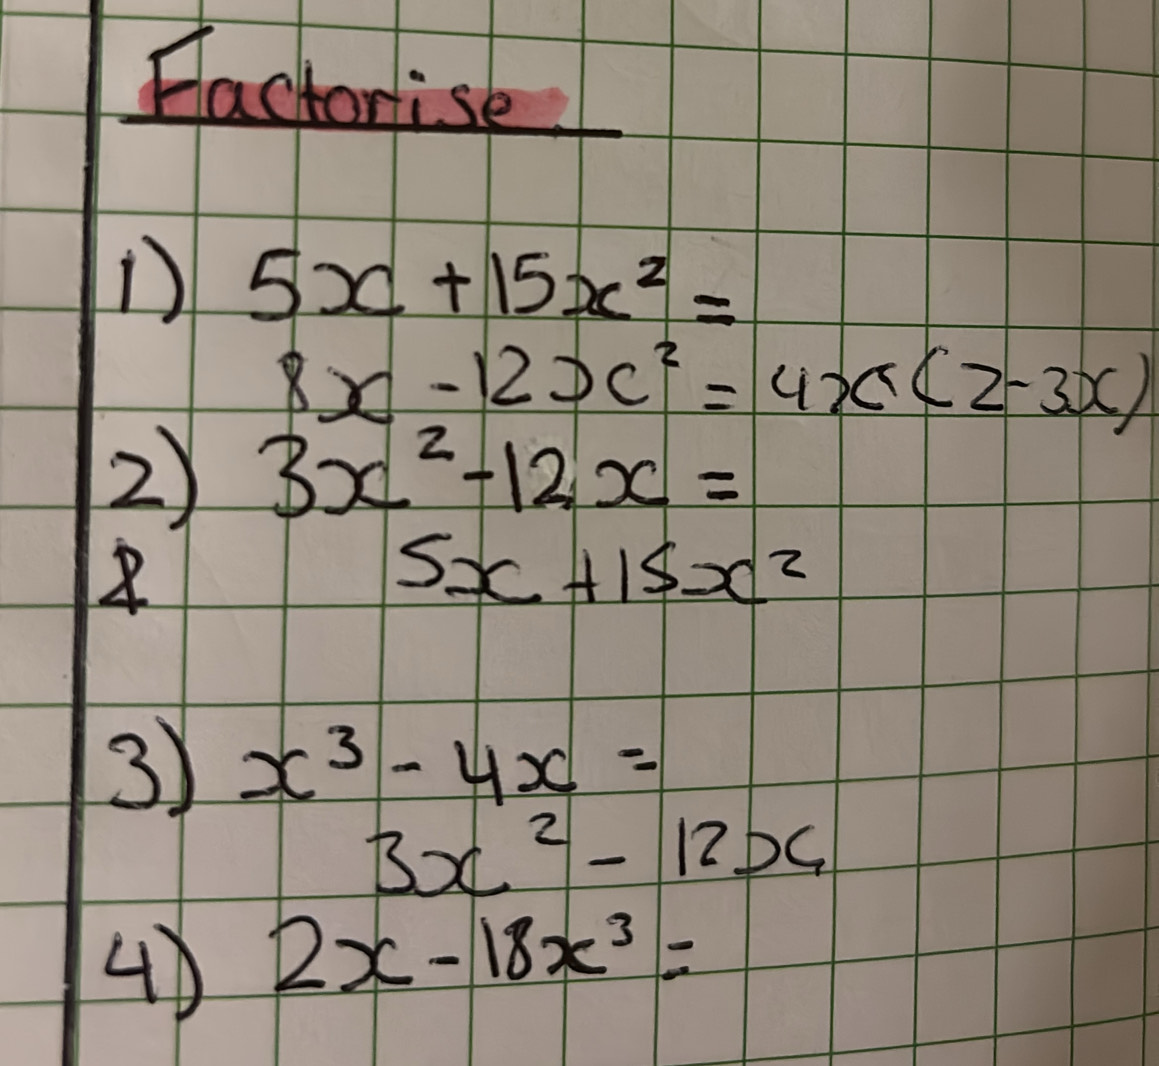 Factorise
1) 5x + 15x² =
8x - 12x² = 4x(2-3x)
2) 3x² - 12x =
5x + 15x²
3) x³ - 4x =
3x² - 12x
4) 2x - 18x³ =